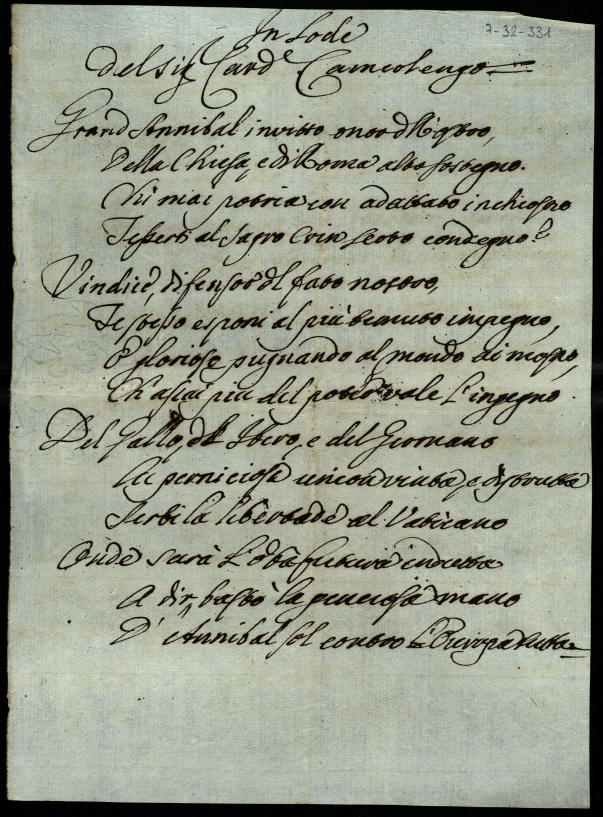 7-32-331
In Lode
Del Sig.r Card.e Camerlengo
Grand Annibal invitto onor d'l'ostro,
Della Chiesa, e di Roma alto sostegno.
Chi mai potria con adattato inchiostro
Tesserti al sagro Crin serto condegno?
Vindice, difensor d'l fato nostro,
Te stesso esponi al più temuto impegno,
E gloriose pugnando al mondo ai mostro,
Ch'assai più del poter vale l'ingegno.
Del Gallo, d'l Ibero, e del Germano
La perniciosa union vinta, e distrutta
Serbi la libertade al Vaticano
Onde sarà l'età futura indotta
A dir, bastò la peneiosa mano
D'Annibal sol contro l'Europa tutta